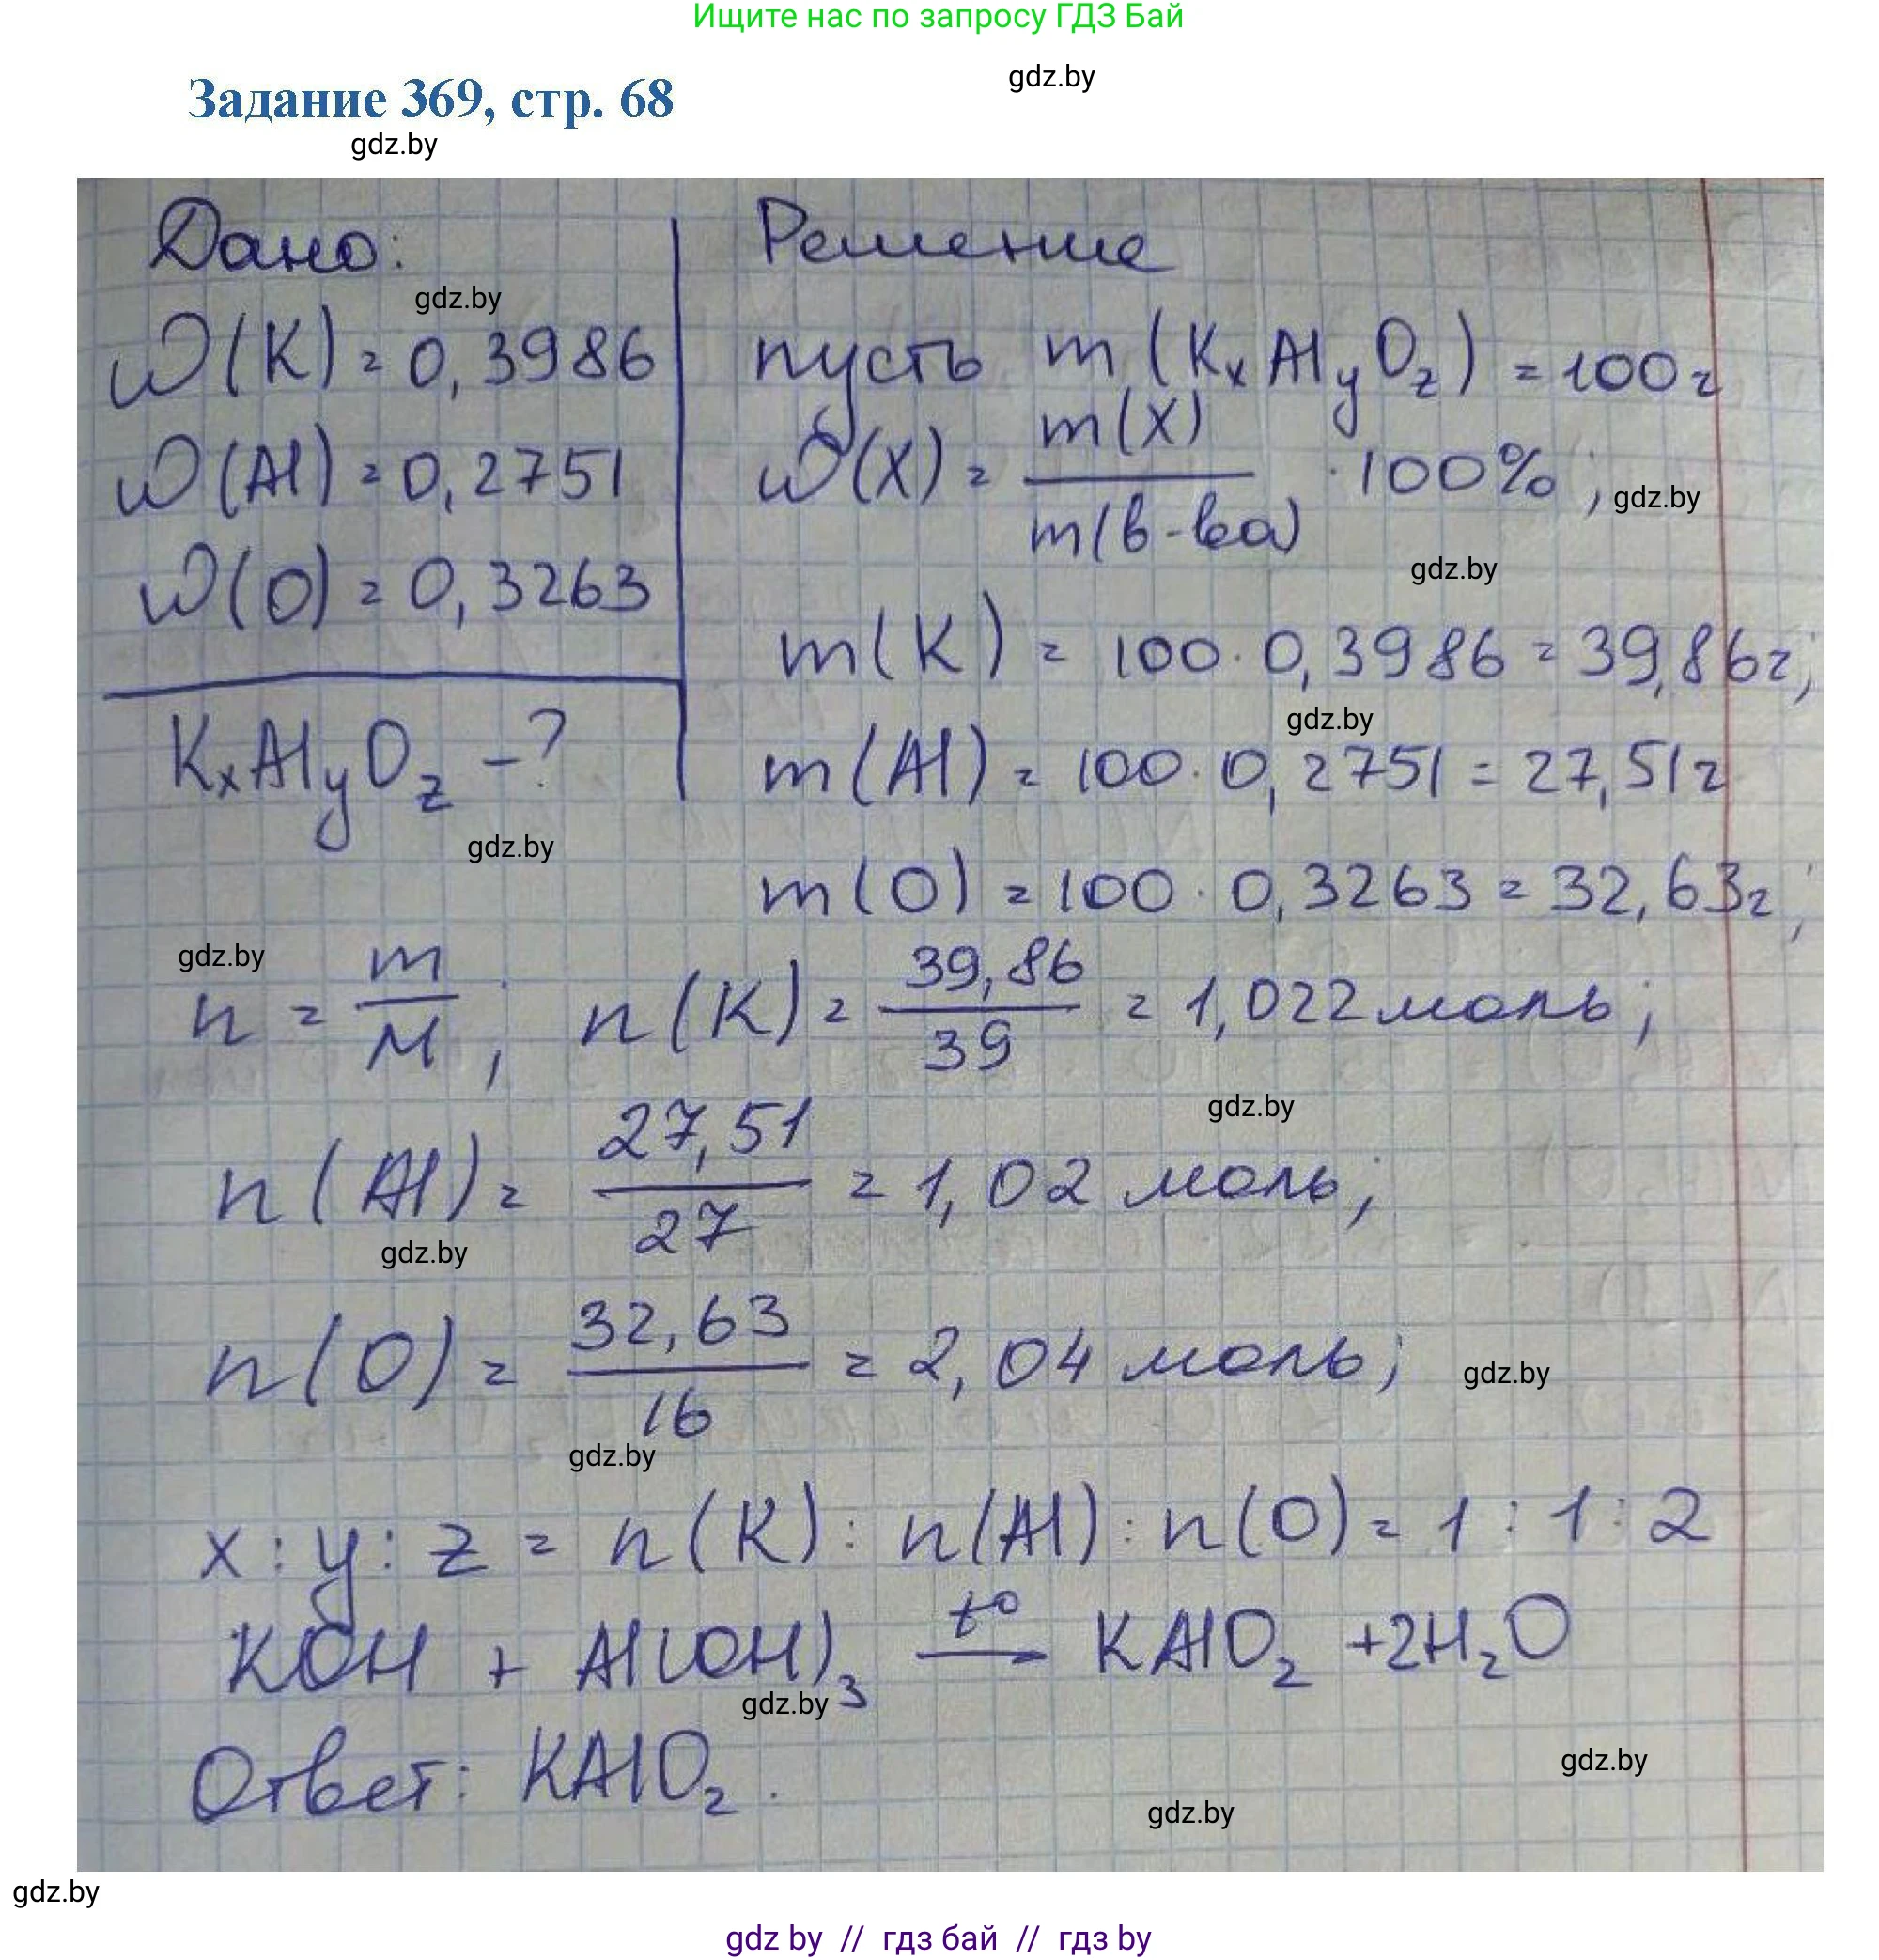 Ищите нас по запросу ГДЗ Бай
gdz.by
Задание 369, стр. 68
gdz.by
Дано:
gdz.by
ω(K) = 0,3986
ω(Al) = 0,2751
ω(O) = 0,3263
KxAlyOz - ?
gdz.by
Решение
пусть m(KxAlyOz) = 100г
ω(X) = m(X) / m(в-ва) · 100%;
gdz.by
gdz.by
m(K) = 100 · 0,3986 = 39,86г;
gdz.by
m(Al) = 100 · 0,2751 = 27,51г
m(O) = 100 · 0,3263 = 32,63г;
gdz.by
n = m / M; n(K) = 39,86 / 39 = 1,022 моль;
gdz.by
n(Al) = 27,51 / 27 = 1,02 моль;
gdz.by
n(O) = 32,63 / 16 = 2,04 моль;
gdz.by
gdz.by
x : y : z = n(K) : n(Al) : n(O) = 1 : 1 : 2
KOH + Al(OH)₃ —t°→ KAlO₂ + 2H₂O
gdz.by
Ответ: KAlO₂.
gdz.by
gdz.by
gdz.by
gdz by // гдз бай // гдз by